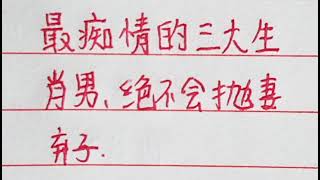 最痴情的三大生
肖男、绝不会抛妻
弃子.